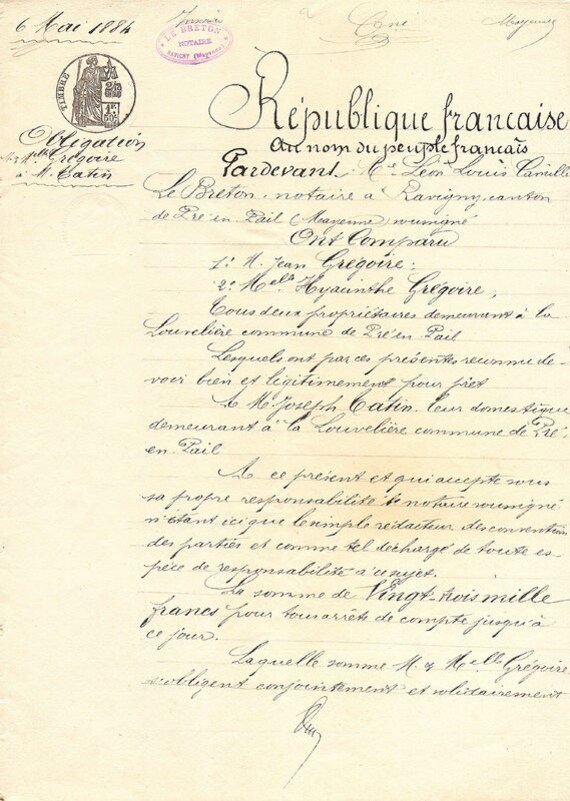 6 Mai 1884
LE BRETON
NOTAIRE
RAVIGNY (Mayenne)
Mayenne
TIMBRE
Obligation
Mr & Melle Grégoire
à M. Catin
République française
Au nom du peuple français
Pardevant Me Léon Louis Camille
Le Breton, notaire à Ravigny, canton
de Pré en Pail (Mayenne) soussigné
Ont Comparu
1º M. Jean Grégoire;
2º Melle Hyacinthe Grégoire,
Tous deux propriétaires demeurant à la
Louvelière commune de Pré en Pail
Lesquels ont par ces présentes reconnu de-
voir bien et légitimement pour prêt
A Mr Joseph Catin leur domestique
demeurant à la Louvelière commune de Pré-
en-Pail
A ce présent et qui accepte sous
sa propre responsabilité le notaire soussigné
n'étant ici que le simple rédacteur des conventions
des parties et comme tel déchargé de toute es-
pèce de responsabilité à ce sujet.
La somme de Vingt-trois mille
francs pour tous arrêts de compte jusqu'à
ce jour.
Laquelle somme M. & Melle Grégoire
s'obligent conjointement et solidairement